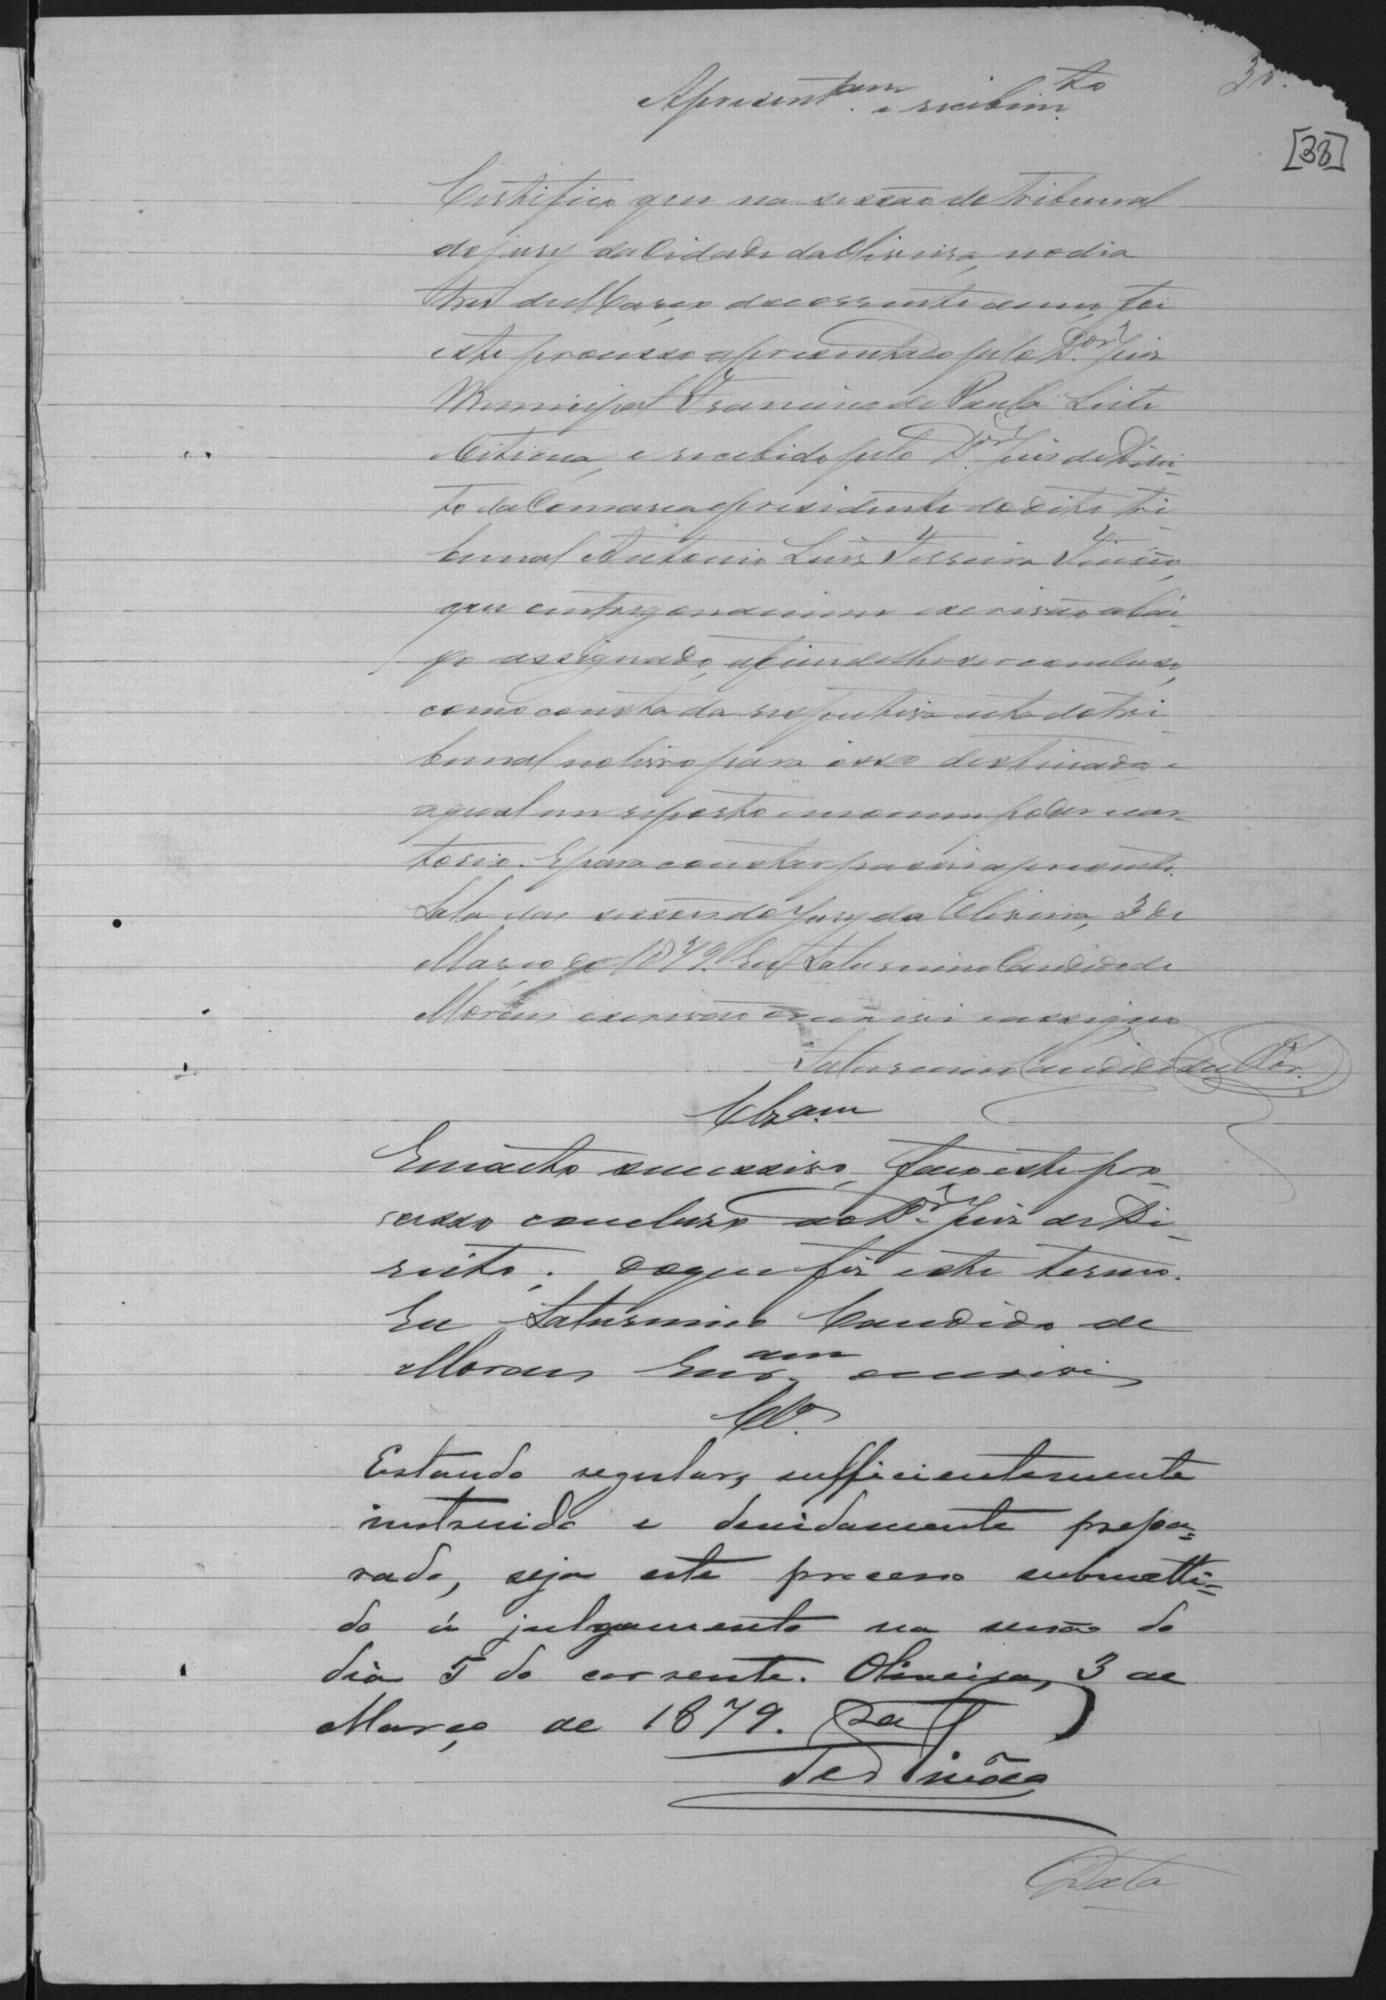 Apresentam. e recebim.to
[38]
Certifico que na sessão do Tribunal
do jury da Cidade da Oliveira, no dia
tres de Março do corrente anno, foi
este processo apresentado pelo D.or Juiz
Municipal Francisco de Paula Leite
e recebido pelo D.or Juis de Direi-
to da Comarca presidente do dito tri
bunal Antonio Luis Ferreira Tinôco,
que entregou a mim escrivão abai-
xo assignado, afim de lhe ser concluso,
como consta da respectiva acta do tri
bunal no livro para isso destinado e
a qual me reporto em meu poder e car-
torio. E para constar passei a presente.
Sala das sessões do Jury da Oliveira, 3 de
Março de 1879. Eu Saturnino Candido de
Moraes escrivão escrivi e assigno
Saturnino Candido de Mor.
Clz.am
Em acto successivo, faço este pro
cesso concluso ao D.or Juiz de Di-
reito; do que fiz este termo.
Eu Saturnino Candido de
Moraes Escr.am escrivi
Cl.o
Estando regular, sufficientemente
instruido e devidamente prepa=
rado, seja este processo submetti=
do á julgamento na sessão do
dia 5 do corrente. Oliveira, 3 de
Março de 1879.
Tinôco
Data